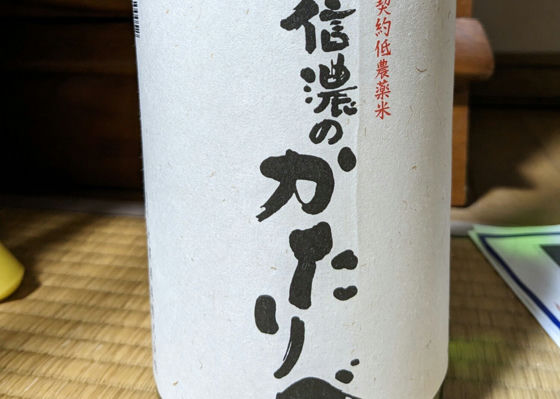 契約低農薬米
信濃の
かたりべ